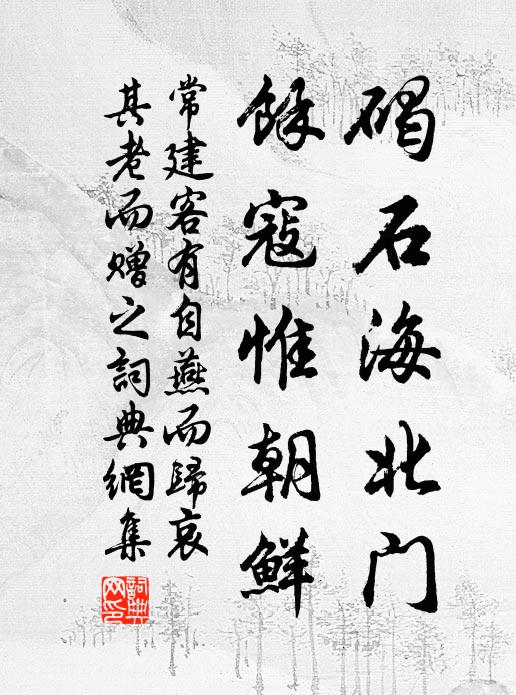 碣石海北门
馀寇惟朝鲜
常建客有自燕而歸哀
其老而赠之詞典網集